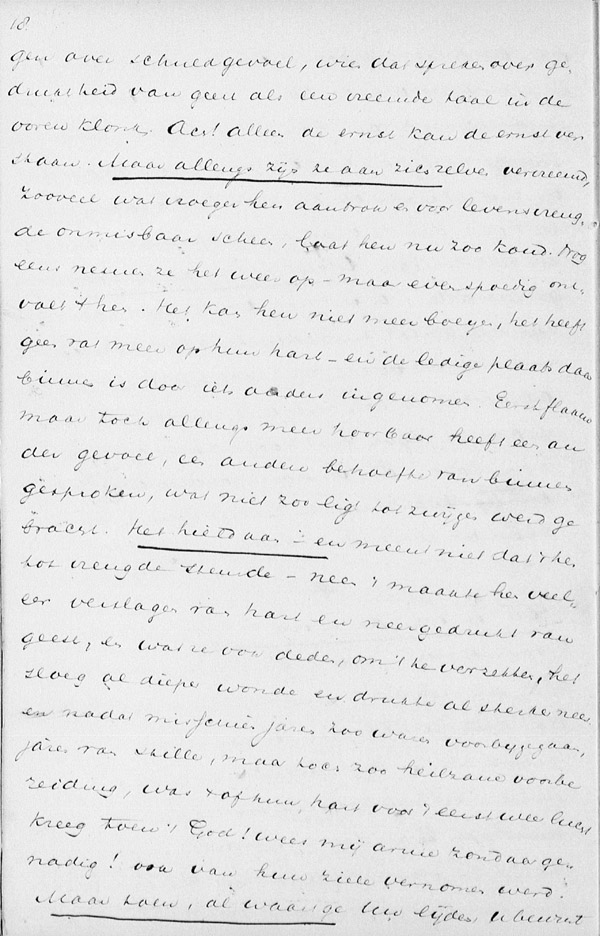 18.
gen over schuldgevoel, wier dat spreken over ge-
druktheid van geest als een vreemde taal in de
ooren klonk. Ach! alleen de ernst kan de ernst ver
staan. Maar allengs zijn ze aan zichzelve vervreemd,
zooveel wat vroeger hen aantrok en voor levensvreug-
de onmisbaar scheen, laat hen nu zoo koud. Nog
eens nemen ze het weer op - maar even spoedig ont-
valt 't hen. Het kan hen niet meer boeijen, het heeft
geen vat meer op hun hart - en de ledige plaats daar
binnen is door iets anders ingenomen. Eerst flaauw
maar toch allengs meer hoorbaar heeft een an
der gevoel, een andere behoefte van binnen
gesproken, wat niet zoo ligt tot zwijgen werd ge
bracht. Het hield aan - en meent niet dat 't hen
tot vreugde stemde - neen 't maakte hen veel-
eer verslagen van hart en neergedrukt van
geest, en wat ze ook deden, om 't te verzetten, het
sloeg al diepe wonde en drukte al sterker neer
en nadat misschien jaren zoo waren voorbijgegaan,
jaren van stille, maar toch zoo heilzame voorbe
reiding, was 't of hun hart voor 't eerst weer lucht
kreeg toen 't God! wees mij arme zondaar ge-
nadig! ook van hun ziele vernomen werd.
Maar toen, al waart ge Uw lijden U bewust